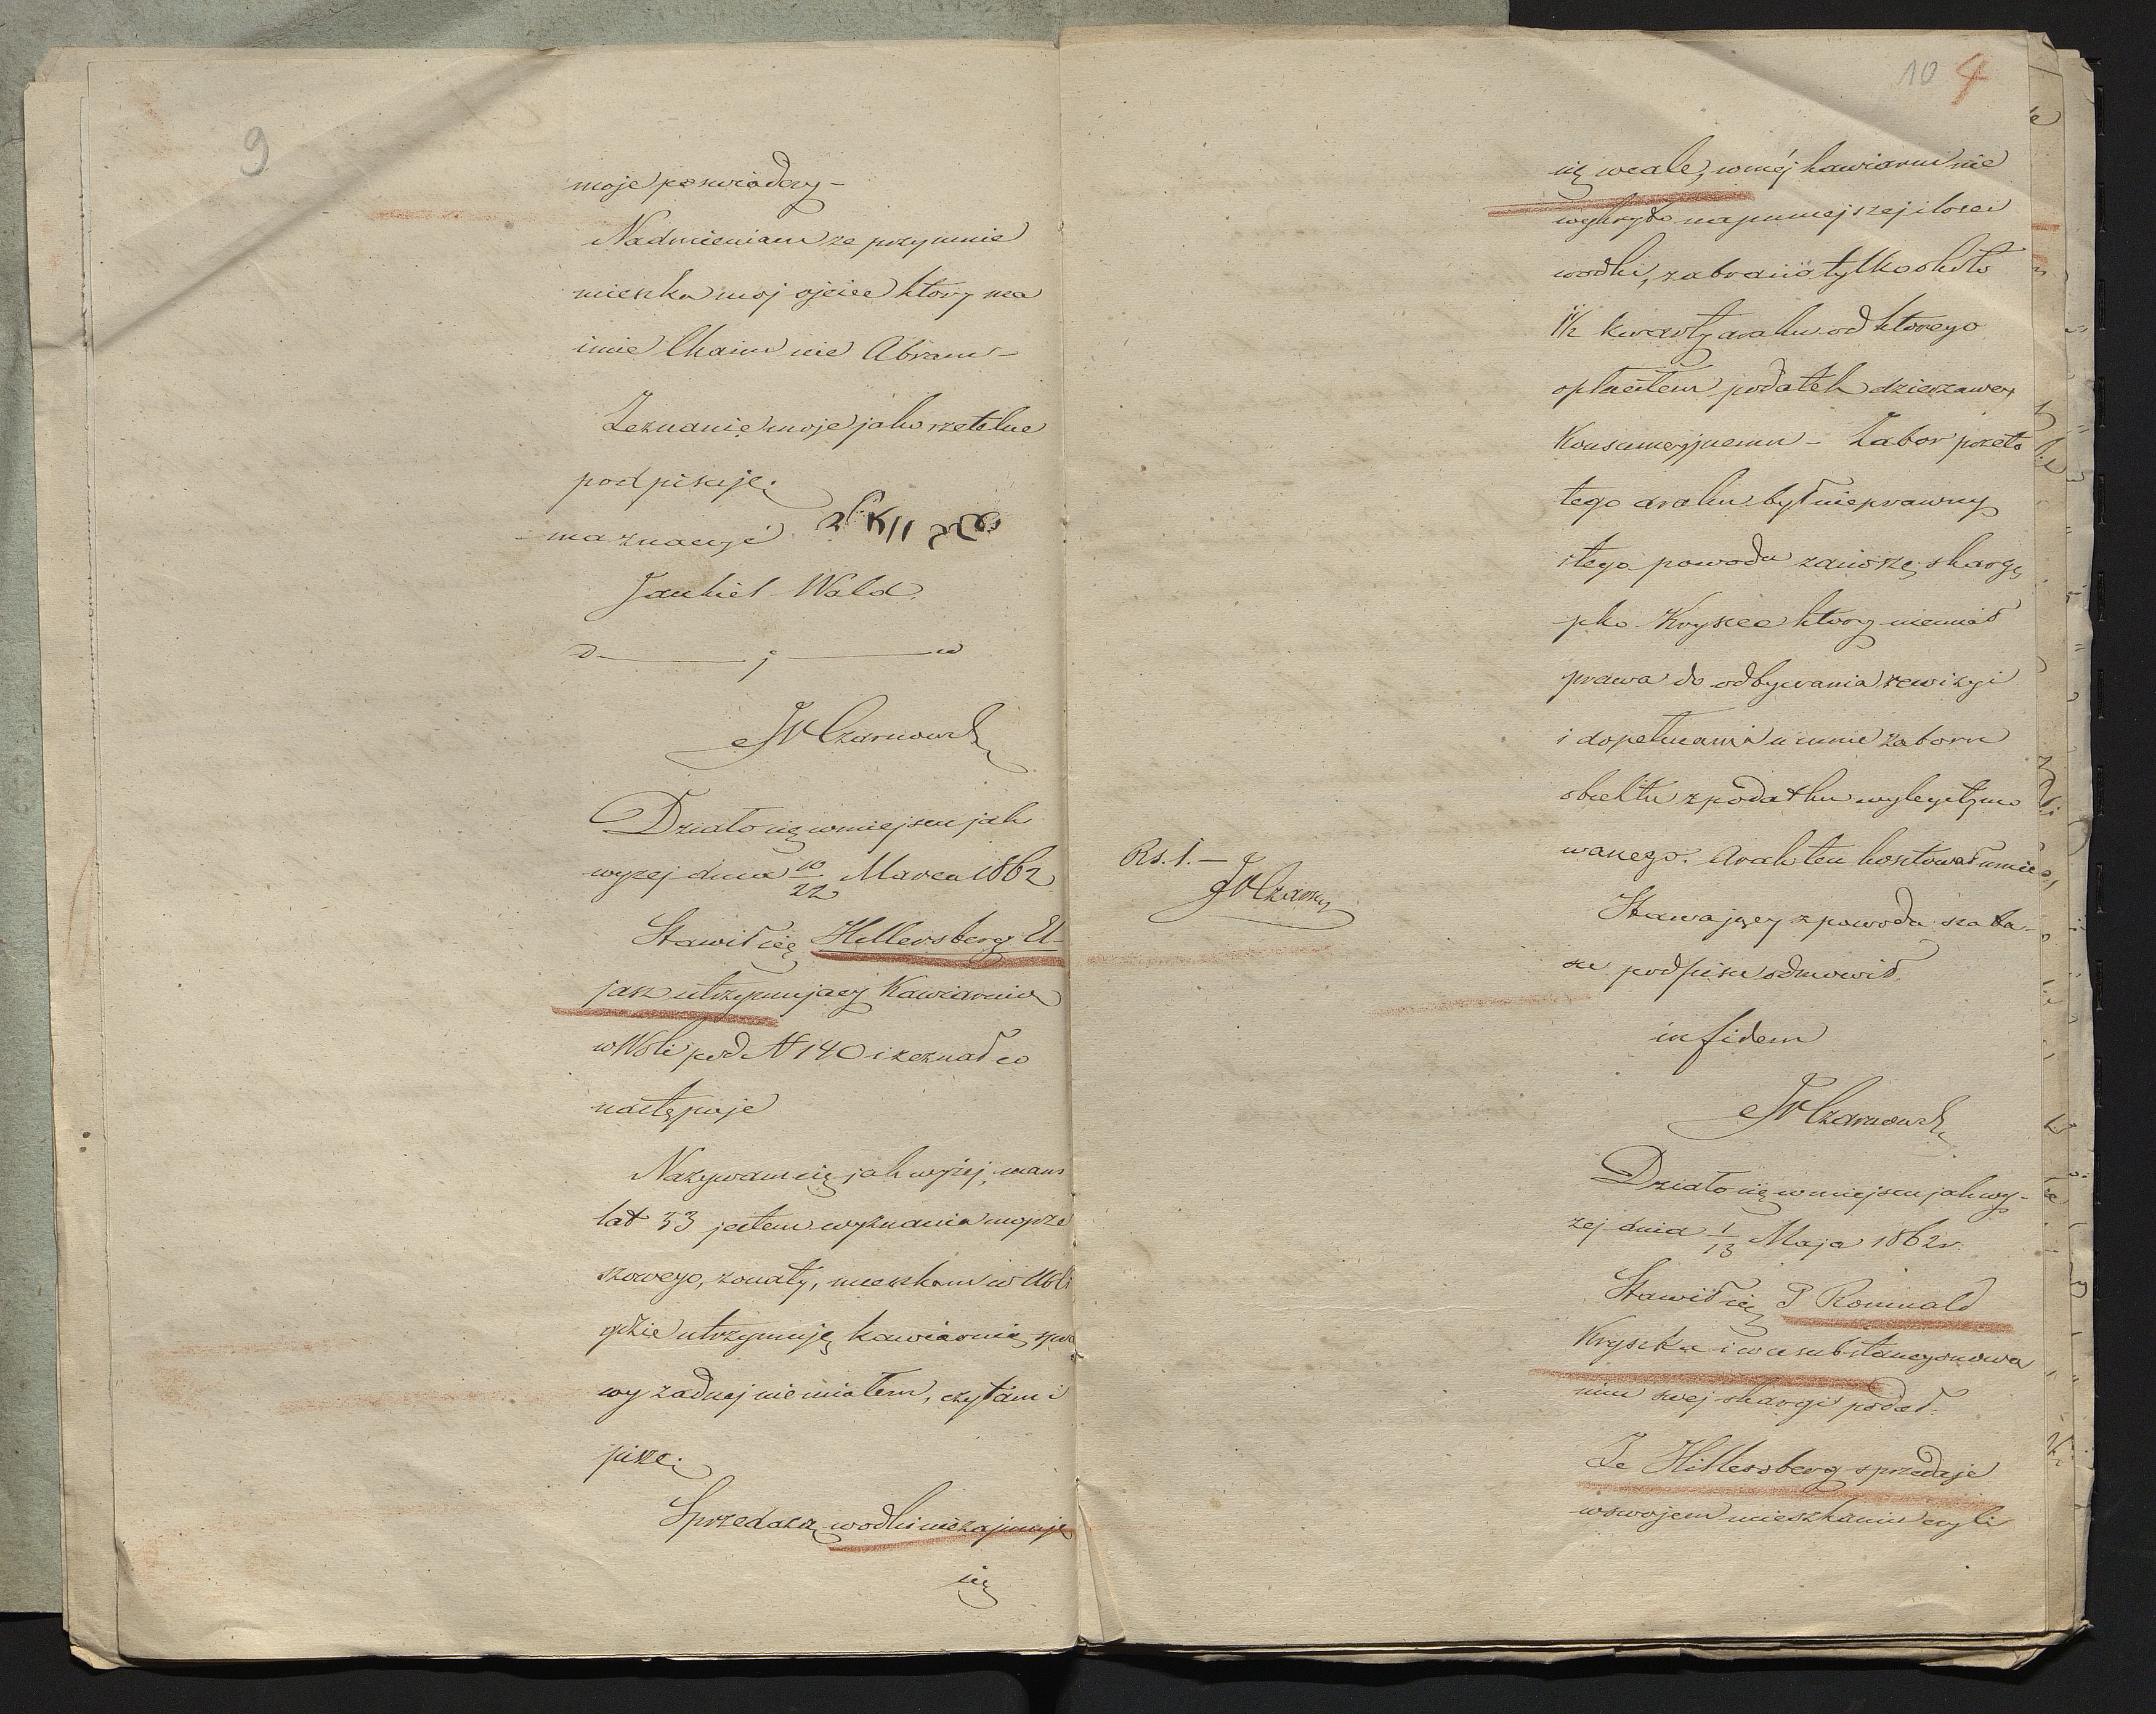 9
moje poswiadczy –
Nadmieniam ze przymnie
mieszka moj ojciec ktory ma
imie Chaim nie Abram –
Zeznanie moje jako rzetelne
podpisuje.
– ma znaczyć
Jankiel Wald.
D ——— j ——— w
JW Czarnowski
Działo się w miejscu jak
wyzej dnia 10/22 Marca 1862
Stawił się Hillersberg El-
jasz utrzymujący Kawiarnią
w Woli pod N 140 i zeznał co
następuje
Nazywam się jak wyżej, mam
lat 33 jestem wyznania mojże
szowego, zonaty, mieszkam w Woli
gdzie utrzymuję kawiarnią, spra
wy zadnej nie miałem, czytam i
piszę.
Sprzedażą wodki nie zajmuję
się
10 4
się wcale, w mej kawiarni nie
wykryto najmniejszej ilosci
wodki, zabrano tylko około
1½ kwarty araku od ktorego
opłaciłem podatek dzierzawcy
Konsumcyjnemu – Zabor przeto
tego araku był nieprawny
i tego powodu zaniosę skargę
pko Krysce ktory niemiał
prawa do odbywania rewizyi
i dopełniania u mnie zaboru
obiektu z podatku wylegitymo
wanego. Arak ten kosztował mnie
Rs. 1. –
JW Czarn
Stawający z powodu szaba-
su podpisu odmowił.
in fidem
JW Czarnowski
Działo się w miejscu jak wy-
zej dnia 1/13 Maja 1862 r.
Stawił się P Romuald
Kryscka i w substancyonowa
niu swej skargi podał.
Ze Hillersberg sprzedaje
w swojem mieszkaniu czyli